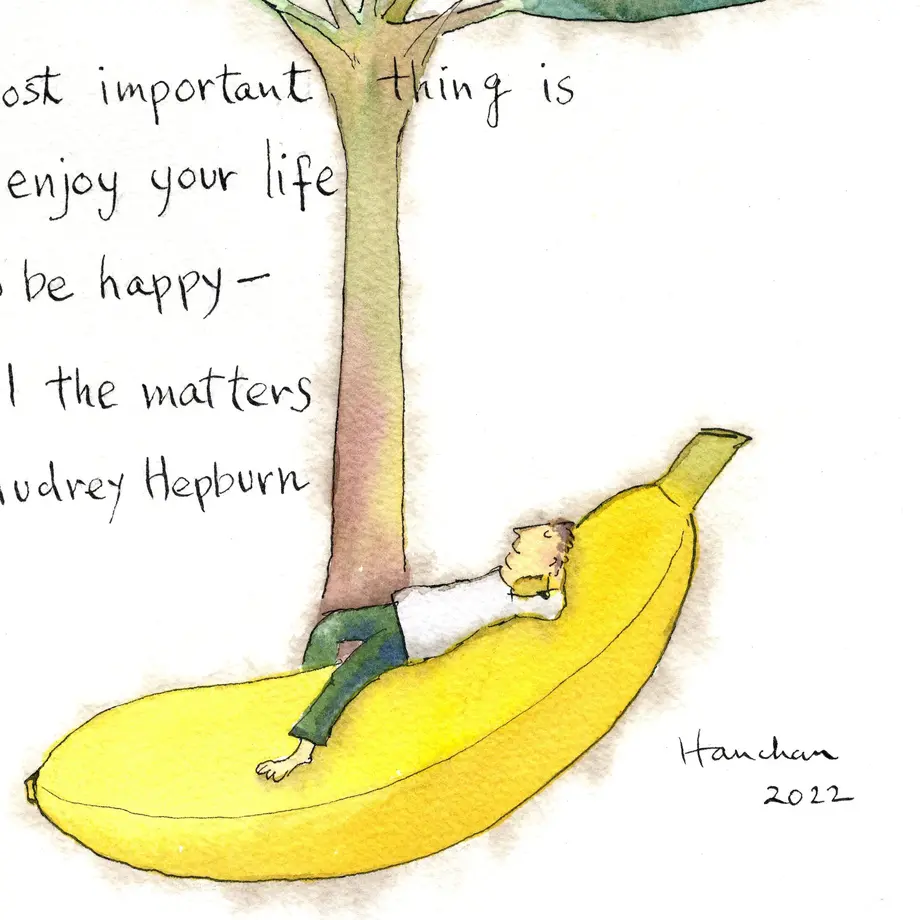 ost important thing is
enjoy your life
be happy—
l the matters
udrey Hepburn
Hanchan
2022